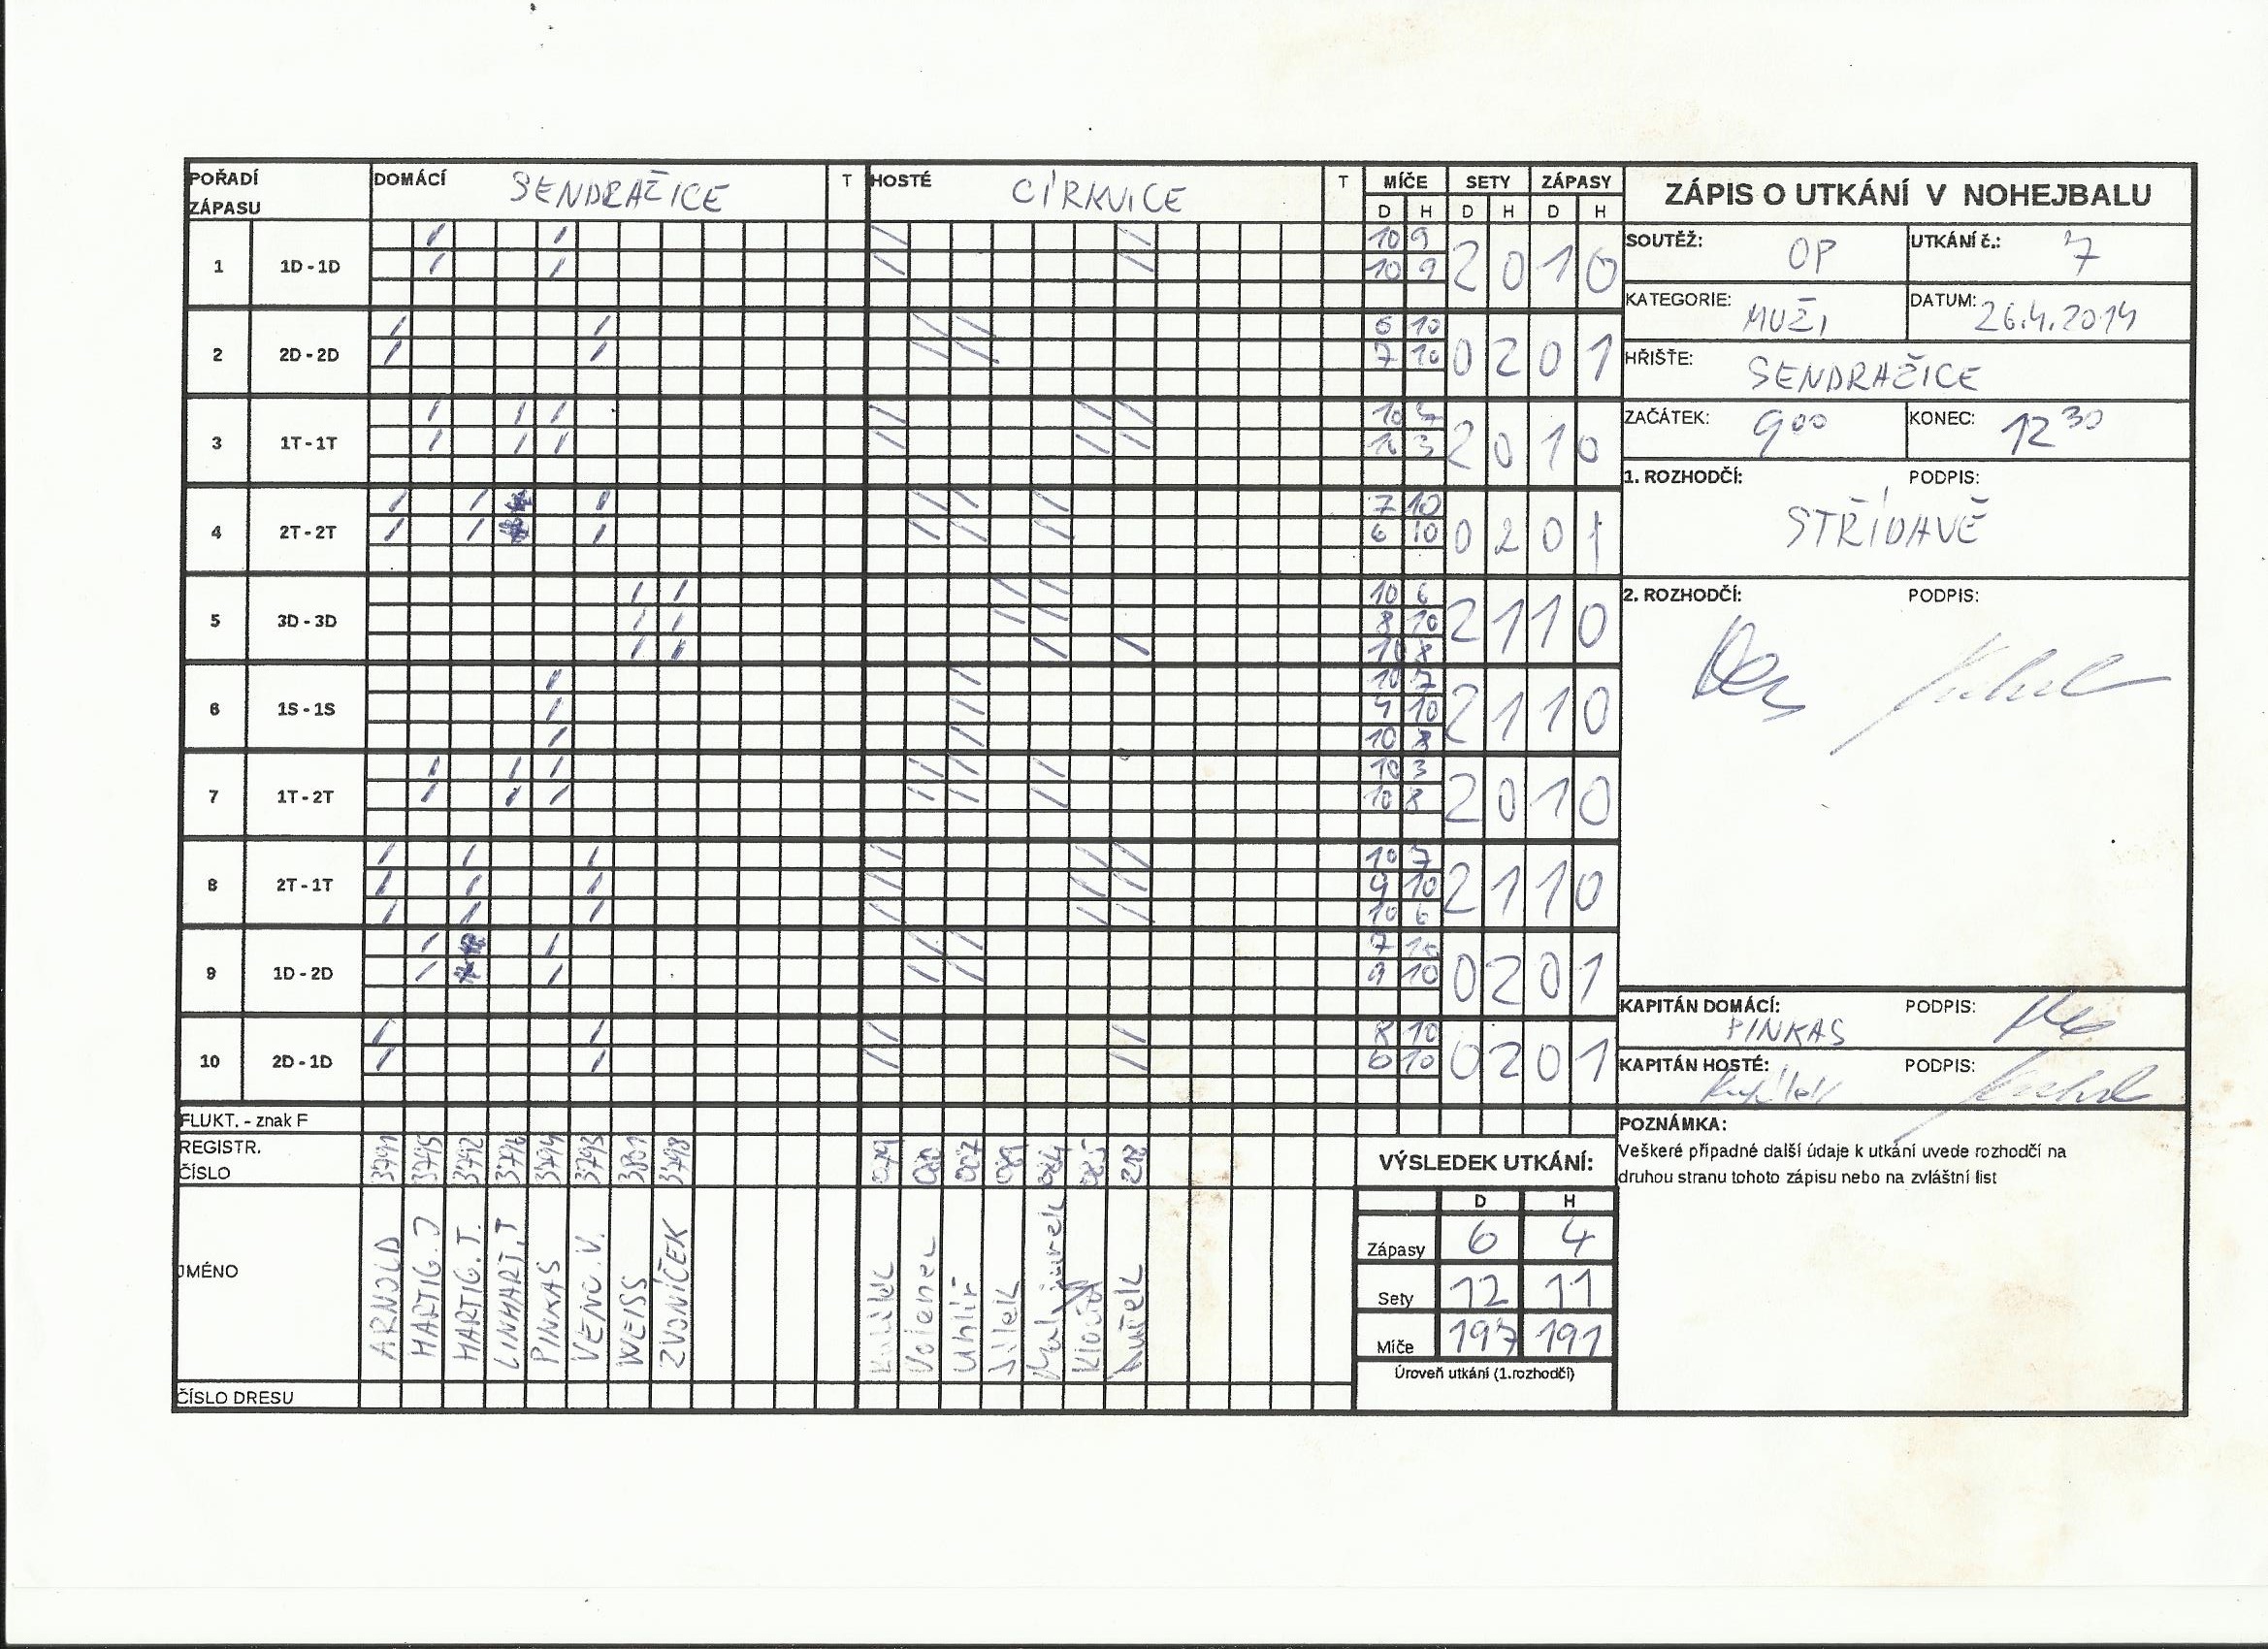 POŘADÍ ZÁPASU DOMÁCÍ SENDRAŽICE T HOSTÉ CÍRKVICE T MÍČE SETY ZÁPASY
D H D H D H
1 1D - 1D 10 9 2 0 1 0
10 9
2 2D - 2D 6 10 0 2 0 1
7 10
3 1T - 1T 10 2 0 1 0
10 3
4 2T - 2T 7 10 0 2 0 1
6 10
5 3D - 3D 10 6 2 1 1 0
8 10
10 8
6 1S - 1S 10 7 2 1 1 0
10
10 8
7 1T - 2T 10 3 2 0 1 0
10 8
8 2T - 1T 10 7 2 1 1 0
9 10
10 6
9 1D - 2D 7 10 0 2 0 1
9 10
10 2D - 1D 8 10 0 2 0 1
6 10
FLUKT. - znak F
REGISTR. ČÍSLO 3791 3795 3792 3796 3794 3793 3801 3798
JMÉNO ARNOLD HARTIG. J HARTIG. T. LINHART. T PINKAS VENC. V. WEISS ZVONÍČEK Volenec Uhlíř Jílek
ČÍSLO DRESU
ZÁPIS O UTKÁNÍ V NOHEJBALU
SOUTĚŽ: OP UTKÁNÍ č.: 7
KATEGORIE: MUŽI DATUM: 26.4.2014
HŘIŠTE: SENDRAŽICE
ZAČÁTEK: 9 00 KONEC: 12 30
1. ROZHODČÍ: PODPIS:
STŘÍDAVĚ
2. ROZHODČÍ: PODPIS:
KAPITÁN DOMÁCÍ: PODPIS:
PINKAS
KAPITÁN HOSTÉ: PODPIS:
POZNÁMKA:
Veškeré případné další údaje k utkání uvede rozhodčí na
druhou stranu tohoto zápisu nebo na zvláštní list
VÝSLEDEK UTKÁNÍ:
D H
Zápasy 6 4
Sety 12 11
Míče 197 191
Úroveň utkání (1.rozhodčí)